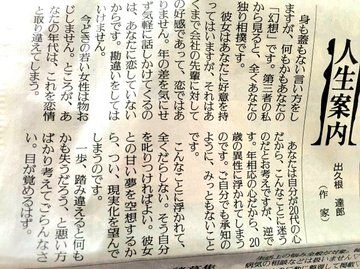 人生案内
出久根 達郎
(作家)
身も蓋もない言い方をし
ますが、何もかもあなたの
「幻想」です。第三者の私
から見ると、全くあなたの
独り相撲です。
彼女はあなたに好意を持
ってはいますが、それはあ
くまで会社の先輩に対して
の好感であって、恋ではあ
りません。年の差を気にせ
ず気軽に話しかけてくるの
は、あなたに恋していない
からです。勘違いをしては
いけません。
今どきの若い女性は物お
じしません。ところが、あ
なたの年代は、これを恋情
と取り違えてしまう。
あなたは自分が10代の心
だから、こんなことに迷う
のだとお考えですが、逆で
す。年相応の心だから、20
歳の異性に浮かれてしまう
のです。ご自分でも承知の
ように、みっともないこと
です。
こんなことに浮かれて、
全くだらしない。そう自分
を叱りつければよい。彼女
との甘い夢を空想するか
ら、つい、現実化を望んで
しまうのです。
一歩、踏み違えると何も
かも失うだろう、と悪い方
ばかり考えてごらんなさ
い。目が覚めるはず。